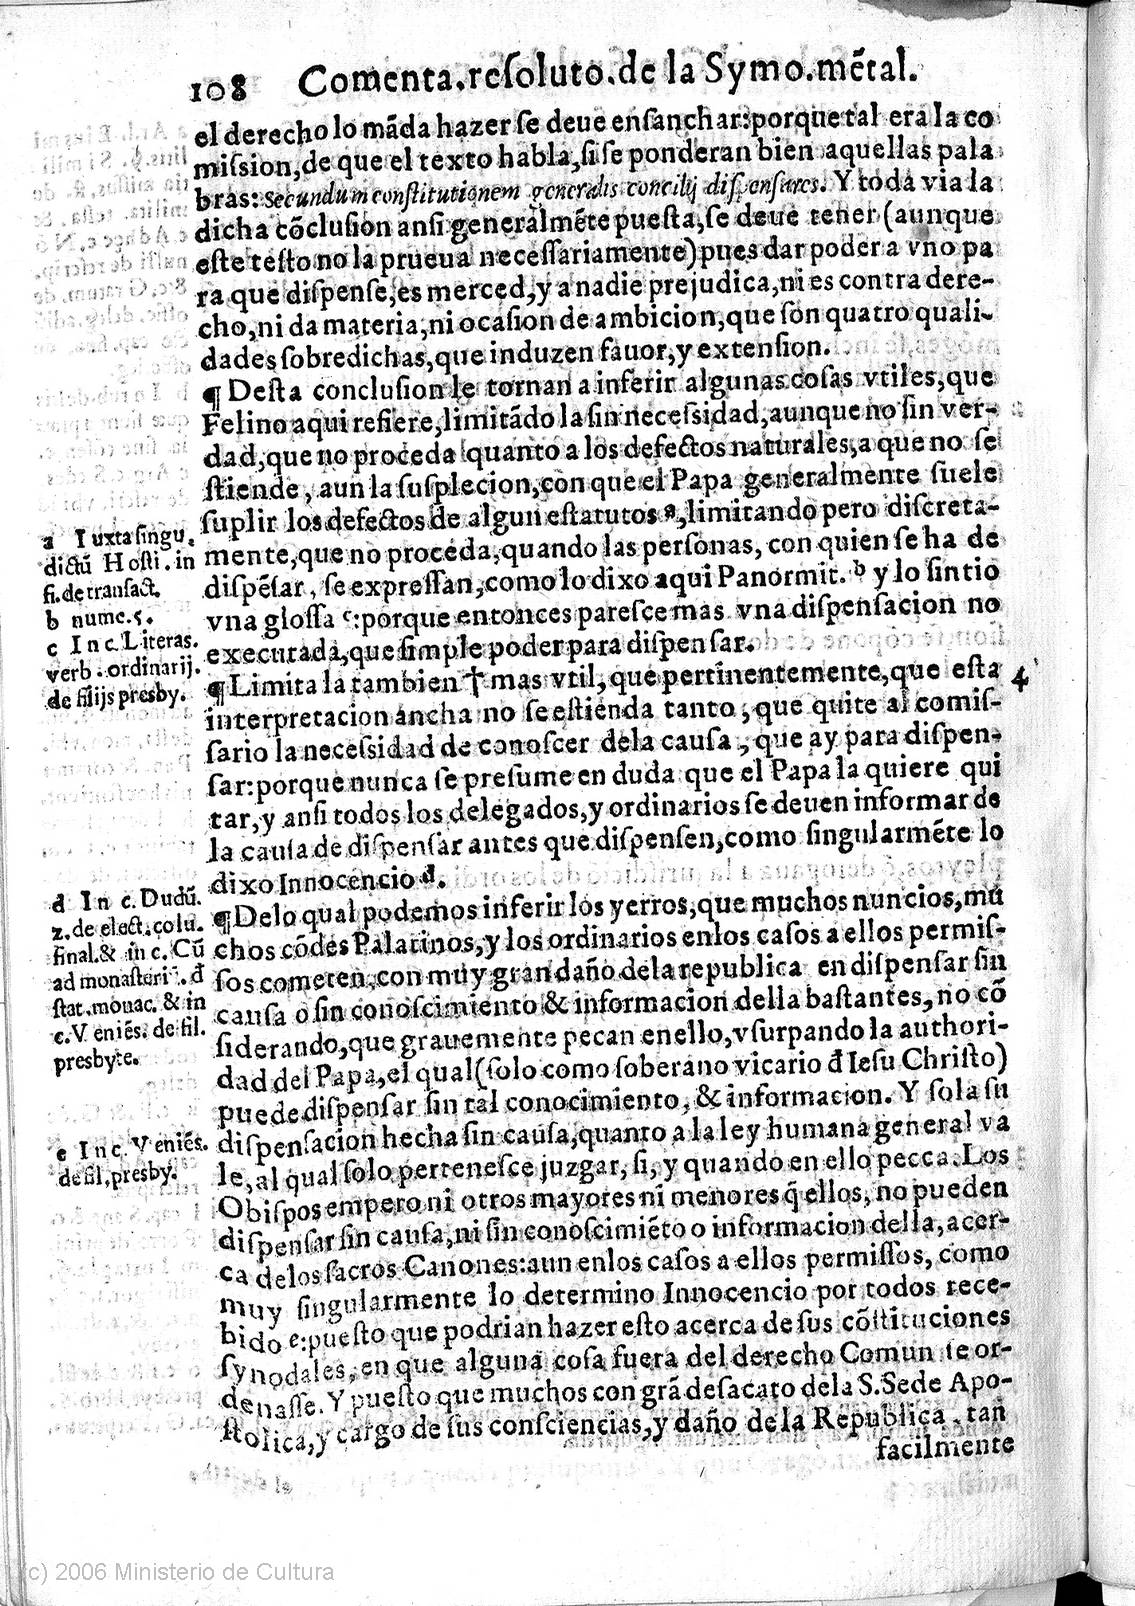 108 Comenta.resoluto.de la Symo.mẽtal.
el derecho lo mãda hazer se deue ensanchar:porque tal era la co
mission,de que el texto habla,si se ponderan bien aquellas pala
bras: Secundum constitutionem generalis concilij dispensares. Y toda via la
dicha cõclusion ansi generalmẽte puesta,se deue tener (aunque
este testo no la prueua necessariamente) pues dar poder a vno pa
ra que dispense,es merced,y a nadie prejudica,ni es contra dere-
cho,ni da materia,ni ocasion de ambicion,que son quatro quali-
dades sobredichas,que induzen fauor,y extension.
¶ Desta conclusion le tornan a inferir algunas cosas vtiles,que
Felino aqui refiere,limitãdo la sin necessidad,aunque no sin ver-
dad,que no proceda quanto a los defectos naturales,a que no se
stiende, aun la susplecion,con que el Papa generalmente suele
suplir los defectos de algun estatutos a,limitando pero discreta-
mente,que no proceda,quando las personas, con quien se ha de
dispẽsar, se expressan,como lo dixo aqui Panormit. b y lo sintio
vna glossa c:porque entonces paresce mas vna dispensacion no
executada,que simple poder para dispensar.
¶ Limita la tambien † mas vtil, que pertinentemente,que esta
interpretacion ancha no se estienda tanto, que quite al comis-
sario la necessidad de conoscer dela causa, que ay para dispen-
sar:porque nunca se presume en duda que el Papa la quiere qui
tar,y ansi todos los delegados,y ordinarios se deuen informar de
la causa de dispensar antes que dispensen,como singularmẽte lo
dixo Innocencio d.
¶ Delo qual podemos inferir los yerros,que muchos nuncios,mu
chos cõdes Palatinos,y los ordinarios enlos casos a ellos permis-
sos cometen,con muy gran daño dela republica en dispensar sin
causa o sin conoscimiento & informacion della bastantes, no cõ
siderando,que grauemente pecan enello,vsurpando la authori-
dad del Papa,el qual (solo como soberano vicario đ Iesu Christo)
puede dispensar sin tal conocimiento, & informacion. Y sola su
dispensacion hecha sin causa,quanto a la ley humana general va
le,al qual solo pertenesce juzgar, si, y quando en ello pecca. Los
Obispos empero ni otros mayores ni menores q̃ ellos, no pueden
dispensar sin causa,ni sin conoscimiẽto o informacion della,acer-
ca delos sacros Canones:aun enlos casos a ellos permissos, como
muy singularmente lo determino Innocencio por todos rece-
bido e:puesto que podrian hazer esto acerca de sus cõstituciones
synodales, en que alguna cosa fuera del derecho Comun se or-
denasse. Y puesto que muchos con grã desacato dela S.Sede Apo-
stolica,y cargo de sus consciencias,y daño de la Republica. tan
facilmente
a Iuxta singu.
dictũ Hosti. in
fi. de transact.
b nume.5.
c In c. Literas.
verb. ordinarij.
de filijs presby.
4
d In c. Dudũ.
2. de elect.colũ.
final.& in c. Cũ
ad monasteriũ. đ
stat.monac. & in
c. Veniẽs. de fil.
presbyte.
e In c. Veniẽs.
de fil, presby.
(c) 2006 Ministerio de Cultura